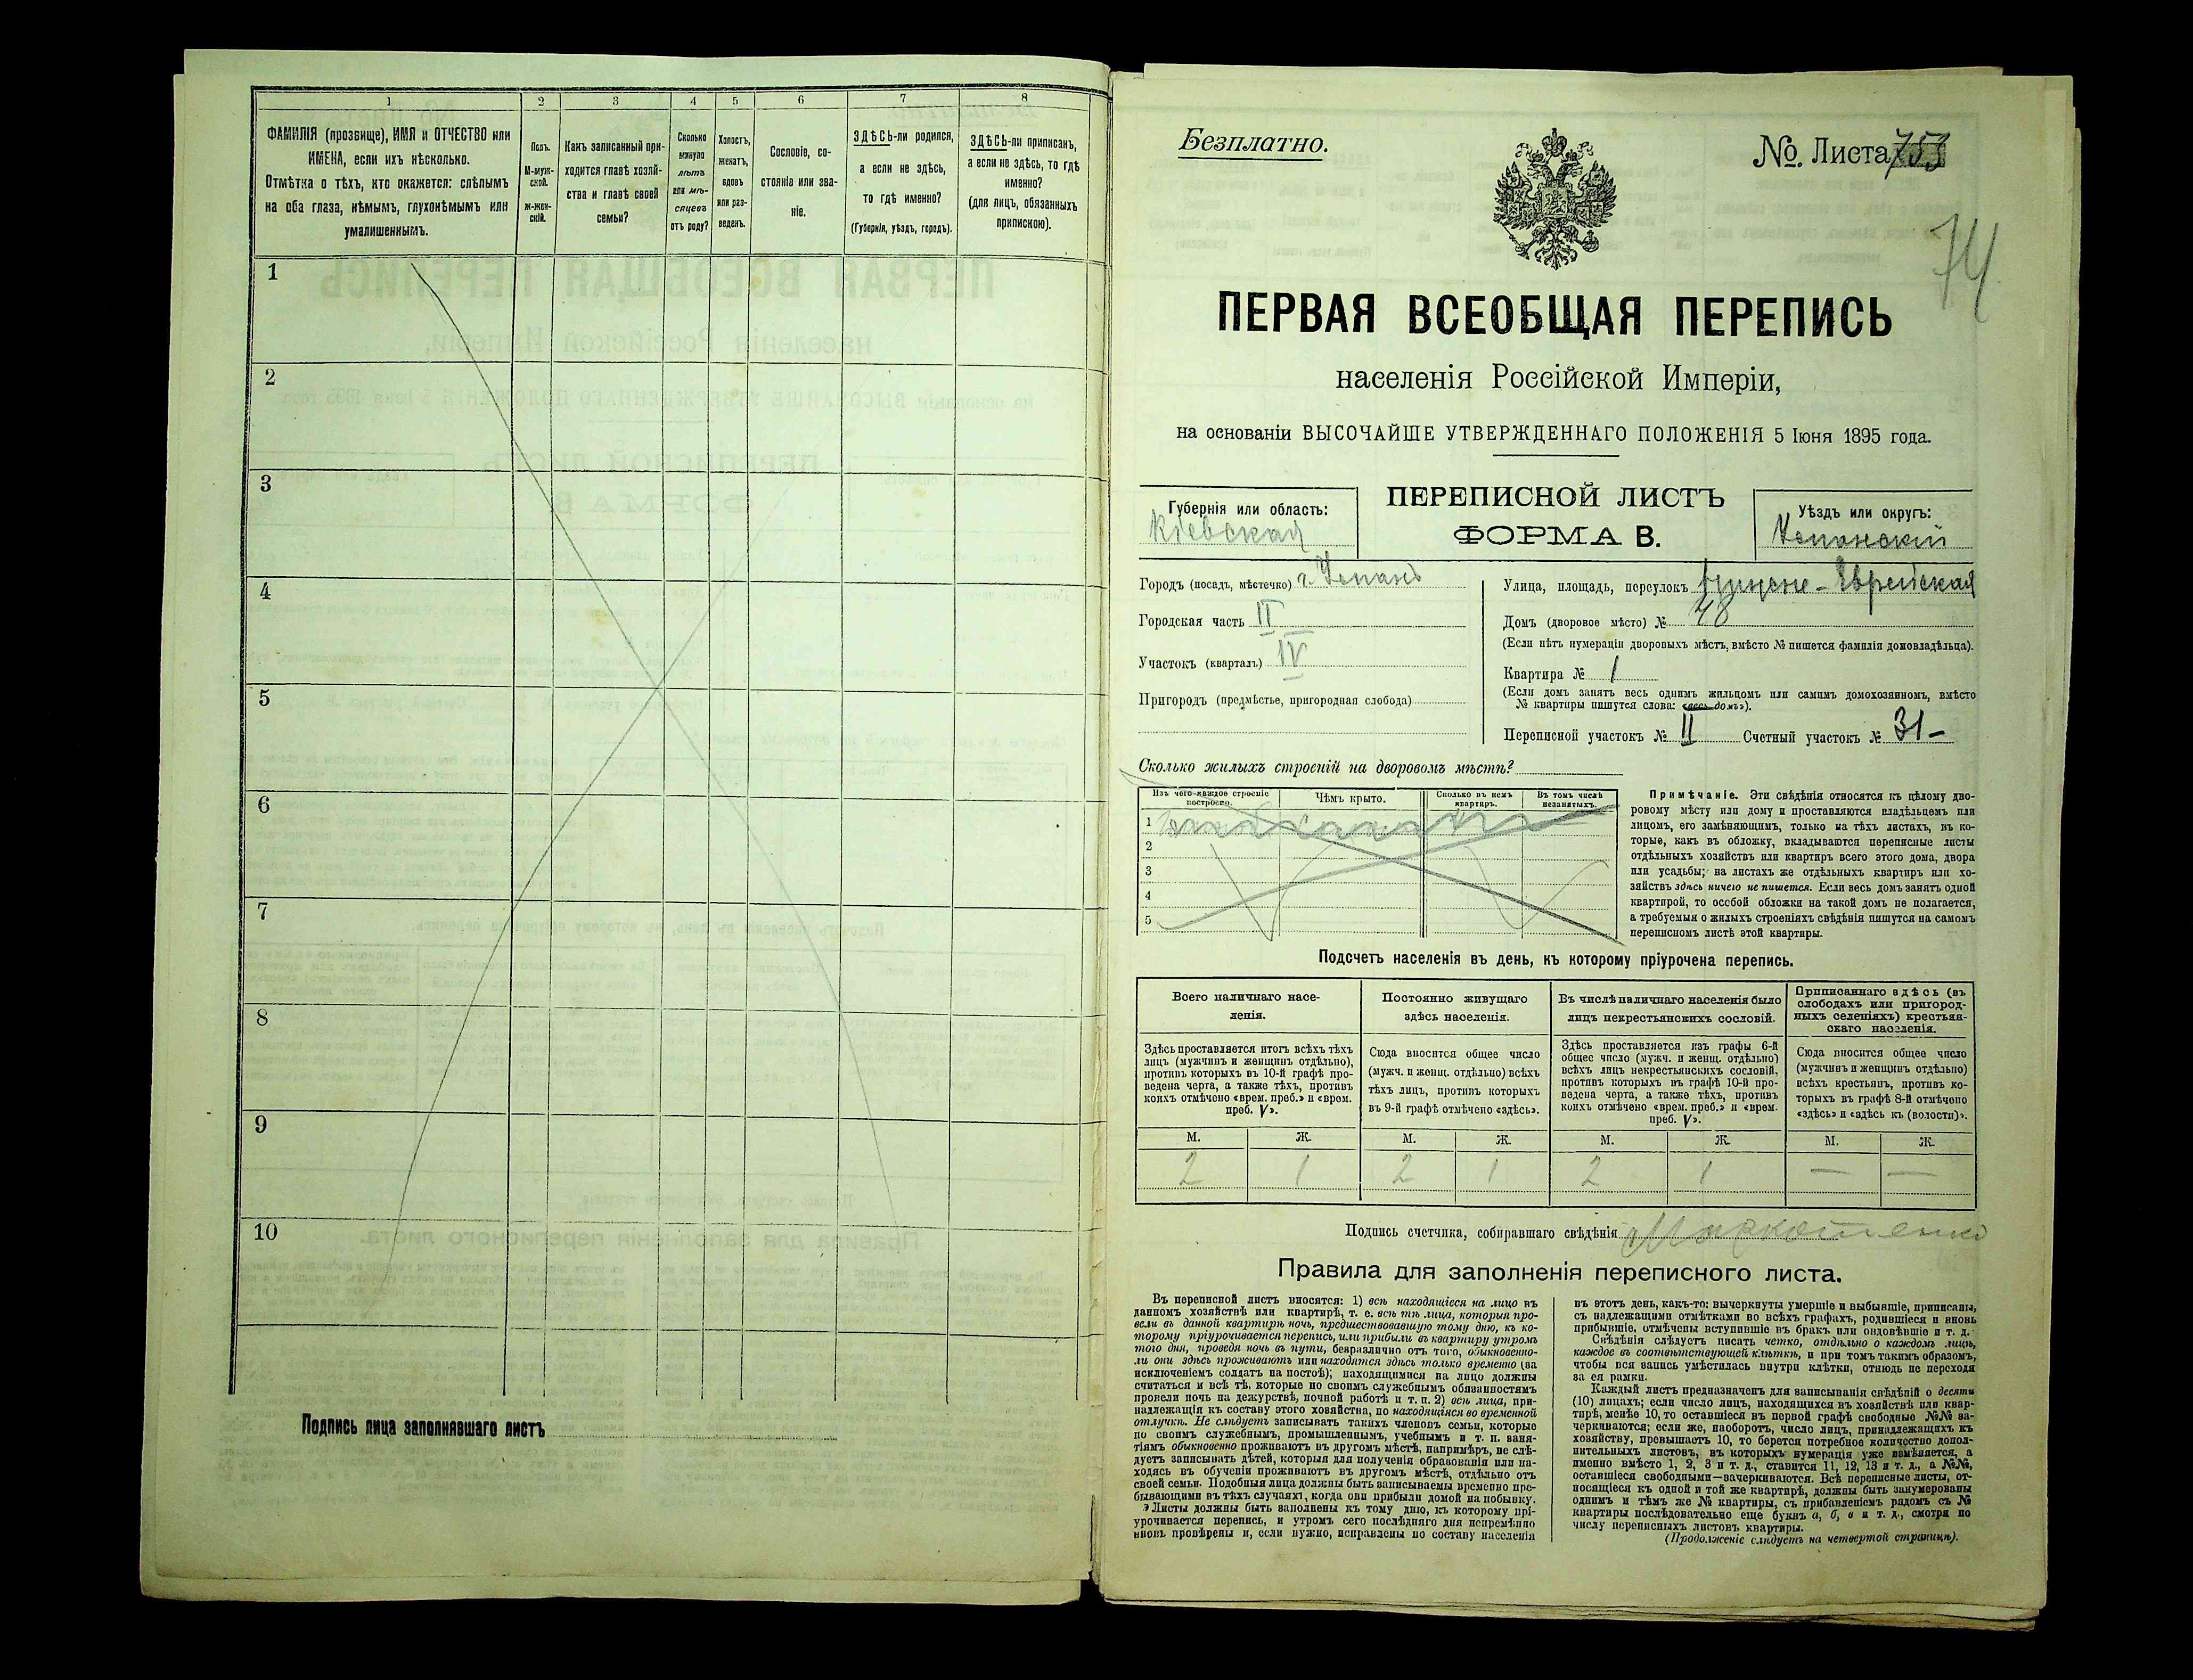 1 2 3 4 5 6 7 8
ФАМИЛІЯ (прозвище), ИМЯ и ОТЧЕСТВО или
ИМЕНА, если ихъ нѣсколько.
Отмѣтка о тѣхъ, кто окажется: слѣпымъ
на оба глаза, нѣмымъ, глухонѣмымъ или
умалишеннымъ.
Полъ.
М-муж-
ской.
ж-жен-
скій.
Какъ записанный при-
ходится главѣ хозяй-
ства и главѣ своей
семьи?
Сколько
минуло
лѣтъ
или мѣ-
сяцевъ
отъ роду?
Холостъ,
женатъ,
вдовъ
или раз-
веденъ.
Сословіе, со-
стояніе или зва-
ніе.
ЗДѢСЬ-ли родился,
а если не здѣсь,
то гдѣ именно?
(Губернія, уѣздъ, городъ).
ЗДѢСЬ-ли приписанъ,
а если не здѣсь, то гдѣ
именно?
(для лицъ, обязанныхъ
припискою).
1
2
3
4
5
6
7
8
9
10
Подпись лица заполнявшаго листъ
Безплатно.
№. Листа 753
74
ПЕРВАЯ ВСЕОБЩАЯ ПЕРЕПИСЬ
населенія Россійской Имперіи,
на основаніи ВЫСОЧАЙШЕ УТВЕРЖДЕННАГО ПОЛОЖЕНІЯ 5 Іюня 1895 года.
ПЕРЕПИСНОЙ ЛИСТЪ
ФОРМА В.
Губернія или область:
Кіевская
Уѣздъ или округъ:
Уманскій
Городъ (посадъ, мѣстечко) г. Умань
Городская часть II
Участокъ (кварталъ) IV
Пригородъ (предмѣстье, пригородная слобода)
Улица, площадь, переулокъ Нижне-Еврейская
Домъ (дворовое мѣсто) № 48
(Если нѣтъ нумераціи дворовыхъ мѣстъ, вмѣсто № пишется фамилія домовладѣльца).
Квартира № 1
(Если домъ занятъ весь однимъ жильцомъ или самимъ домохозяиномъ, вмѣсто
№ квартиры пишутся слова: «весь домъ»).
Переписной участокъ № II Счетный участокъ № 31-
Сколько жилыхъ строеній на дворовомъ мѣстѣ?
Изъ чего каждое строеніе
построено.
Чѣмъ крыто.
Сколько въ немъ
квартиръ.
Въ томъ числѣ
незанятыхъ.
1
2
3
4
5
Примѣчаніе. Эти свѣдѣнія относятся къ цѣлому дво-
ровому мѣсту или дому и проставляются владѣльцемъ или
лицомъ, его замѣняющимъ, только на тѣхъ листахъ, въ ко-
торые, какъ въ обложку, вкладываются переписные листы
отдѣльныхъ хозяйствъ или квартиръ всего этого дома, двора
или усадьбы; на листахъ же отдѣльныхъ квартиръ или хо-
зяйствъ здѣсь ничего не пишется. Если весь домъ занятъ одной
квартирой, то особой обложки на такой домъ не полагается,
а требуемыя о жилыхъ строеніяхъ свѣдѣнія пишутся на самомъ
переписномъ листѣ этой квартиры.
Подсчетъ населенія въ день, къ которому пріурочена перепись.
Всего наличнаго насе-
ленія.
Здѣсь проставляется итогъ всѣхъ тѣхъ
лицъ (мужчинъ и женщинъ отдѣльно),
противъ которыхъ въ 10-й графѣ про-
ведена черта, а также тѣхъ, противъ
коихъ отмѣчено «врем. преб.» и «врем.
преб. V».
Постоянно живущаго
здѣсь населенія.
Сюда вносится общее число
(мужч. и женщ. отдѣльно) всѣхъ
тѣхъ лицъ, противъ которыхъ
въ 9-й графѣ отмѣчено «здѣсь».
Въ числѣ наличнаго населенія было
лицъ некрестьянскихъ сословій.
Здѣсь проставляется изъ графы 6-й
общее число (мужч. и женщ. отдѣльно)
всѣхъ лицъ некрестьянскихъ сословій,
противъ которыхъ въ графѣ 10-й про-
ведена черта, а также тѣхъ, противъ
коихъ отмѣчено «врем. преб.» и «врем.
преб. V».
Приписаннаго здѣсь (въ
слободахъ или пригород-
ныхъ селеніяхъ) крестьян-
скаго населенія.
Сюда вносится общее число
(мужчинъ и женщинъ отдѣльно)
всѣхъ крестьянъ, противъ ко-
торыхъ въ графѣ 8-й отмѣчено
«здѣсь» и «здѣсь къ (волости)».
М. Ж. М. Ж. М. Ж. М. Ж.
2 1 2 1 2 1 — —
Подпись счетчика, собиравшаго свѣдѣнія
Правила для заполненія переписного листа.
Въ переписной листъ вносятся: 1) всѣ находящіеся на лицо въ
данномъ хозяйствѣ или квартирѣ, т. е. всѣ тѣ лица, которыя про-
вели въ данной квартирѣ ночь, предшествовавшую тому дню, къ ко-
торому пріурочивается перепись, или прибыли въ квартиру утромъ
того дня, проведя ночь въ пути, безразлично отъ того, обыкновенно-
ли они здѣсь проживаютъ или находятся здѣсь только временно (за
исключеніемъ солдатъ на постоѣ); находящимися на лицо должны
считаться и всѣ тѣ, которые по своимъ служебнымъ обязанностямъ
провели ночь на дежурствѣ, ночной работѣ и т. п. 2) всѣ лица, при-
надлежащія къ составу этого хозяйства, но находящіяся во временной
отлучкѣ. Не слѣдуетъ записывать такихъ членовъ семьи, которые
по своимъ служебнымъ, промышленнымъ, учебнымъ и т. п. заня-
тіямъ обыкновенно проживаютъ въ другомъ мѣстѣ, напримѣръ, не слѣ-
дуетъ записывать дѣтей, которыя для полученія образованія или на-
ходясь въ обученіи проживаютъ въ другомъ мѣстѣ, отдѣльно отъ
своей семьи. Подобныя лица должны быть записываемы временно пре-
бывающими въ тѣхъ случаяхъ, когда они прибыли домой на побывку.
Листы должны быть заполнены къ тому дню, къ которому прі-
урочивается перепись, и утромъ сего послѣдняго дня непремѣнно
вновь провѣрены и, если нужно, исправлены по составу населенія
въ этотъ день, какъ-то: вычеркнуты умершіе и выбывшіе, приписаны,
съ надлежащими отмѣтками во всѣхъ графахъ, родившіеся и вновь
прибывшіе, отмѣчены вступившіе въ бракъ или овдовѣвшіе и т. д.
Свѣдѣнія слѣдуетъ писать четко, отдѣльно о каждомъ лицѣ,
каждое въ соотвѣтствующей клѣткѣ, и при томъ такимъ образомъ,
чтобы вся запись умѣстилась внутри клѣтки, отнюдь не переходя
за ея рамки.
Каждый листъ предназначенъ для записыванія свѣдѣній о десяти
(10) лицахъ; если число лицъ, находящихся въ хозяйствѣ или квар-
тирѣ, менѣе 10, то оставшіеся въ первой графѣ свободные №№ за-
черкиваются; если же, наоборотъ, число лицъ, принадлежащихъ къ
хозяйству, превышаетъ 10, то берется потребное количество допол-
нительныхъ листовъ, въ которыхъ нумерація уже измѣняется, а
именно вмѣсто 1, 2, 3 и т. д., ставится 11, 12, 13 и т. д., а №№,
оставшіеся свободными—зачеркиваются. Всѣ переписные листы, от-
носящіеся къ одной и той же квартирѣ, должны быть занумерованы
однимъ и тѣмъ же № квартиры, съ прибавленіемъ рядомъ съ №
квартиры послѣдовательно еще буквъ а, б, в и т. д., смотря по
числу переписныхъ листовъ квартиры.
(Продолженіе слѣдуетъ на четвертой страницѣ).